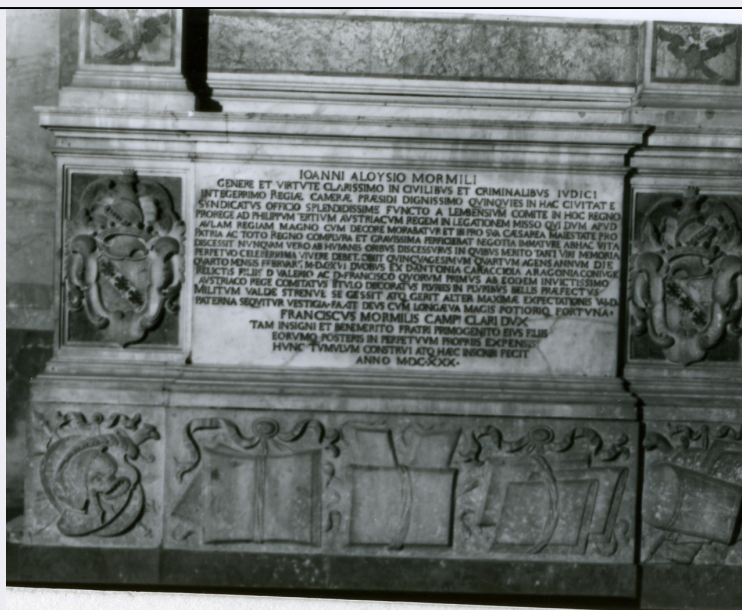 IOANNI ALOYSIO MORMILI
GENERE ET VIRTVTE CLARISSIMO IN CIVILIBVS ET CRIMINALIBVS IVDICI
INTEGERRIMO REGIÆ CAMERÆ PRÆSIDI DIGNISSIMO QVINQVIES IN HAC CIVITATE
SYNDICATVS OFFICIO SPLENDIDISSIME FVNCTO A LEMENSIVM COMITE IN HOC REGNO
PROREGE AD PHILIPPVM TERTIVM AVSTRIACVM REGEM IN LEGATIONEM MISSO QVI DVM APVD
AVLAM REGIAM MAGNO CVM DECORE MORABATVR ET IBI PRO SVA CÆSAREA MAIESTATE PRO
PATRIA AC TOTO REGNO COMPLVRA ET GRAVISSIMA PERFICIEBAT NEGOTIA IMMATVRE AB HAC VITA
DISCESSIT NVNQVAM VERO AB HVMANIS ORIBVS DISCESSVRVS IN QVIBVS MERITO TANTI VIRI MEMORIA
PERPETVO CELEBERRIMA VIVERE DEBET OBIIT QVINQVAGESIMVM QVARTVM AGENS ANNVM DIE
QVARTO MENSIS FEBRVARII DVOBVS EX D ANTONIA CARACCIOLA ARAGONIA CONIVGE
RELICTIS FILIIS D VALERIO AC D FRANCISCO QVORVM PRIMVS AB EODEM INVICTISSIMO
AVSTRIACO REGE COMITATVS TITVLO DECORATVS PLVRIES IN PLVRIBVS BELLIS PRÆFECTVS
MILITVM VALDE STRENVE SE GESSIT ATQ GERIT ALTER MAXIMÆ EXPECTATIONIS
PATERNA SEQVITVR VESTIGIA FAXIT DEVS CVM LONGÆVA MAGIS POTIORIQ FORTVNA
FRANCISCVS MORMILIS CAMPI CLARI DVX
TAM INSIGNI ET BENEMERITO FRATRI PRIMOGENITO EIVS FILIIS
EORVMQ POSTERIS IN PERPETVVM PROPRIIS EXPENSIS
HVNC TVMVLVM CONSTRVI ATQ HÆC INSCRIBI FECIT
ANNO MDCXXX